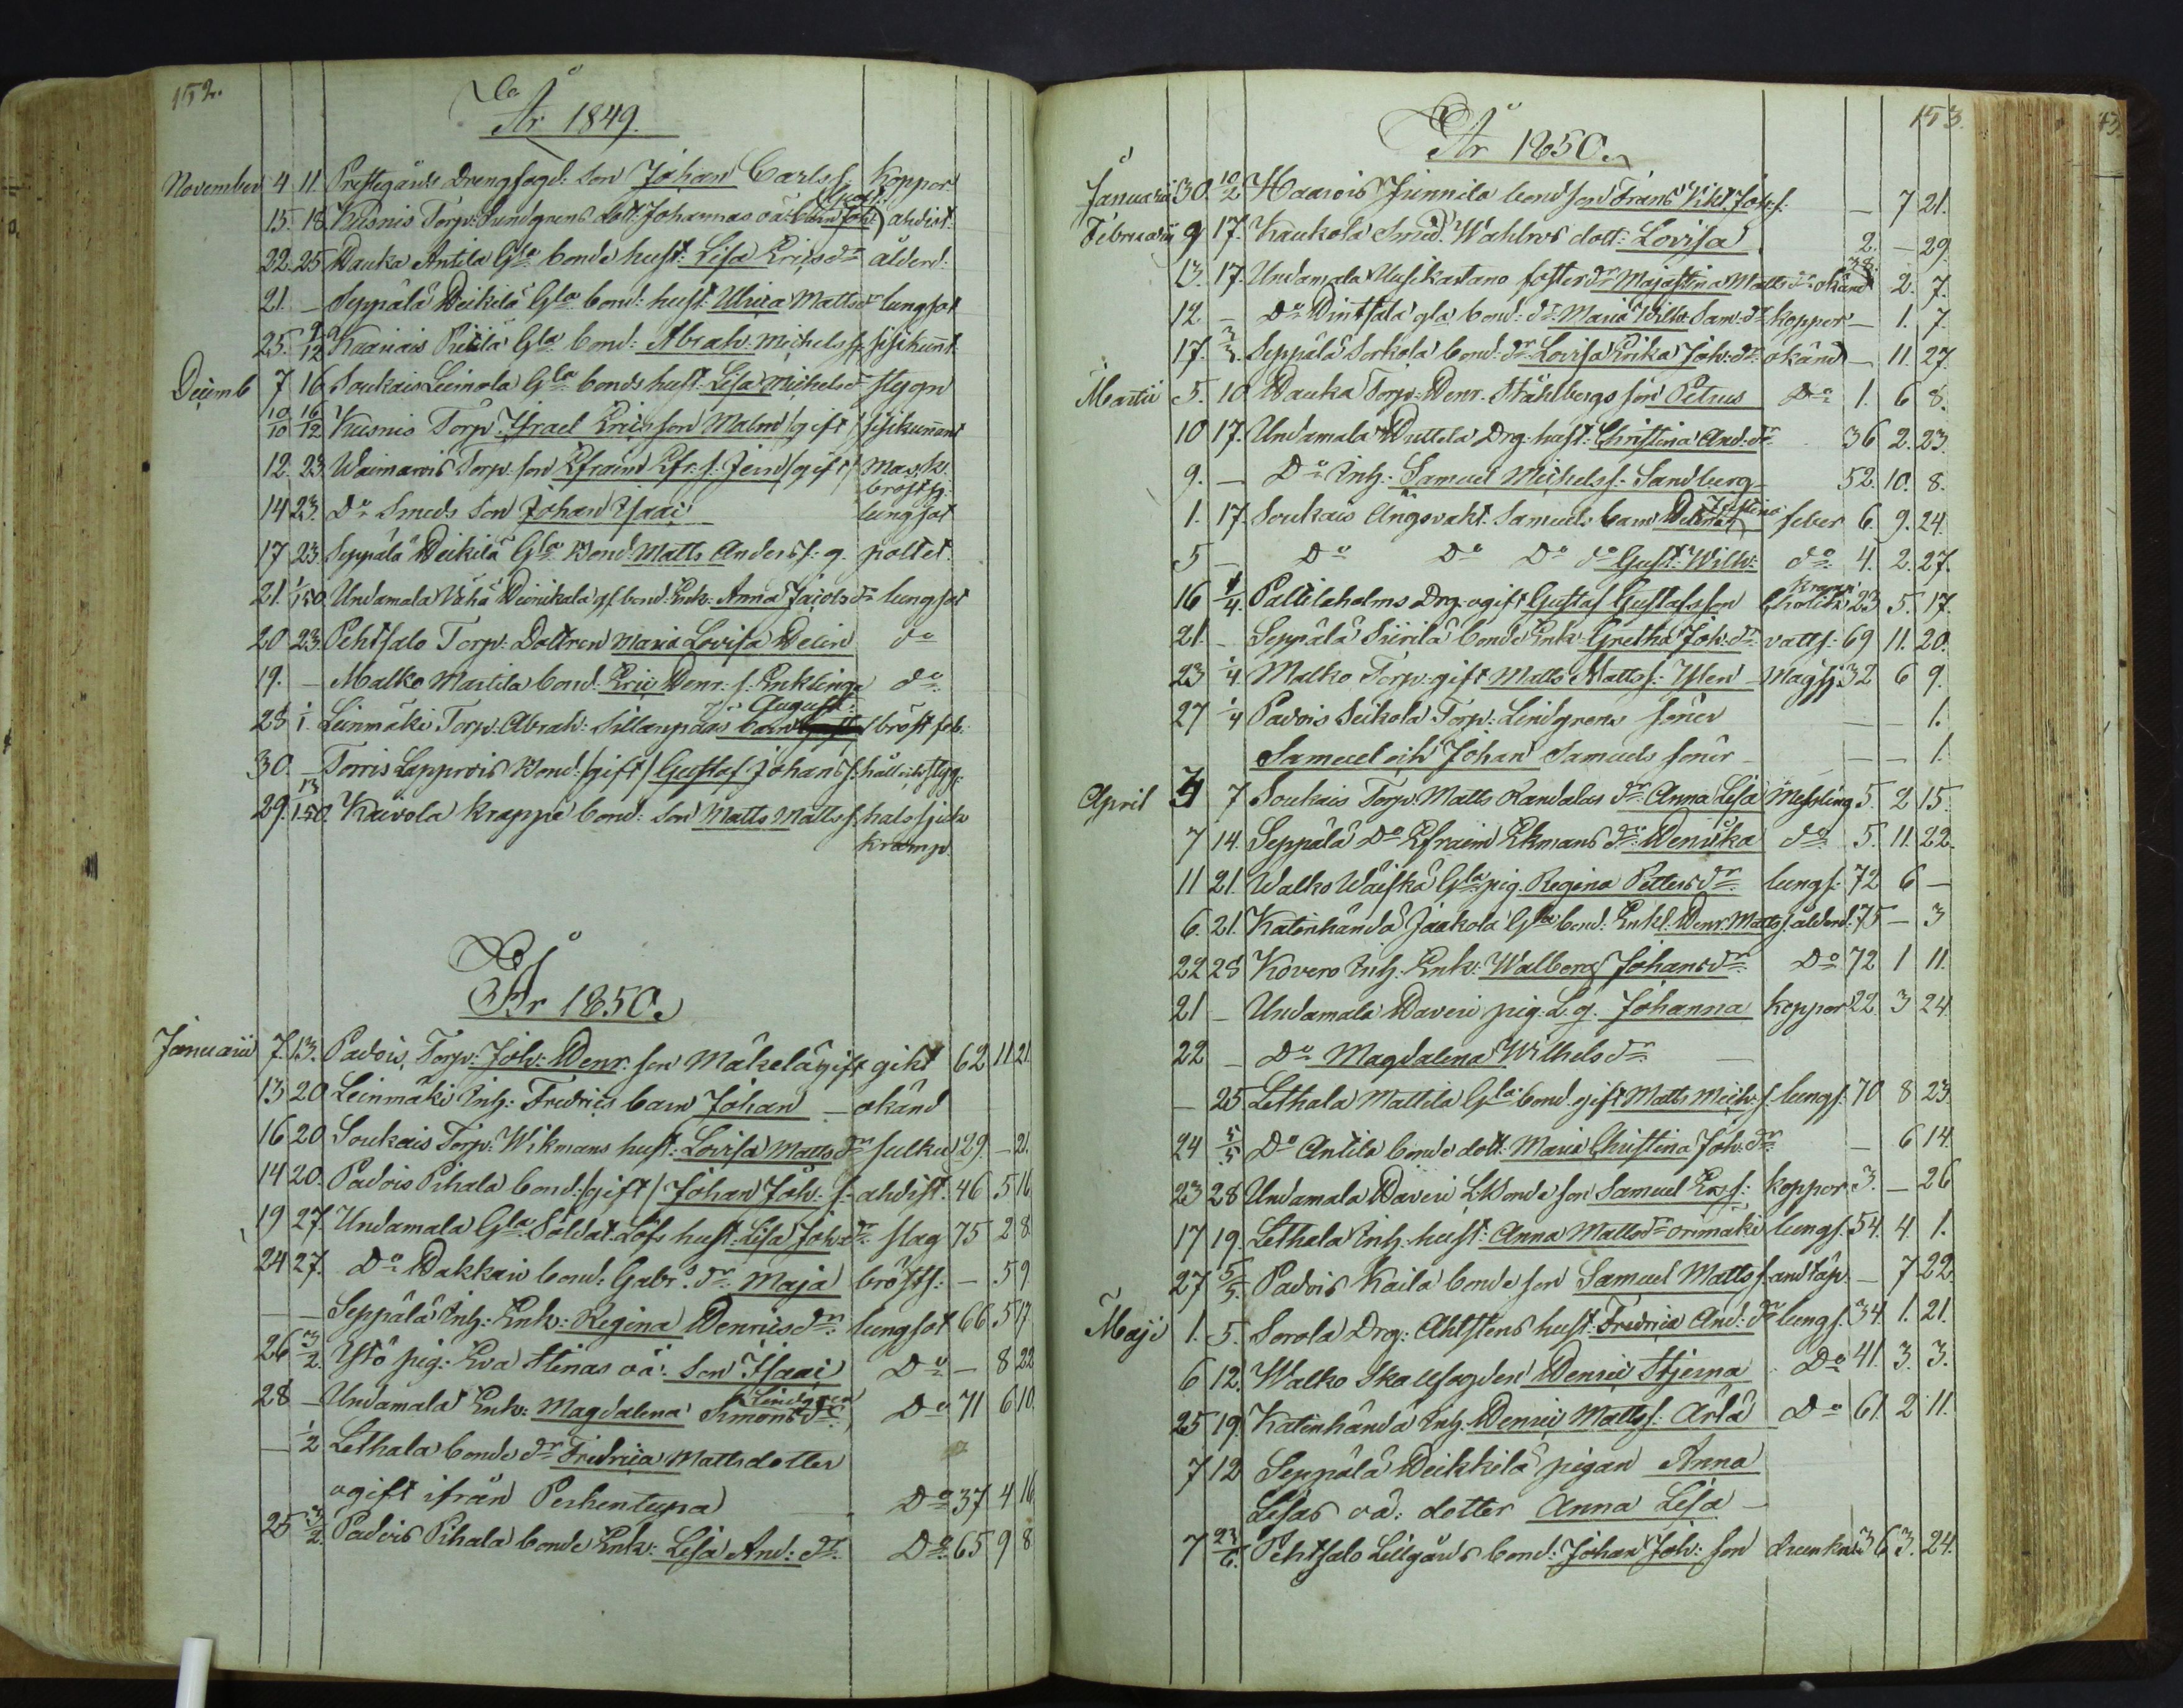 152.
År 1849.
November 4 11 Prestegårds Drengfogd: son Johan Carls s. Koppor
15. 18. Kusnis Torp: Sundgrens dott: Johannas oä: barn Joh: andist:
22. 25 Hauka Antila Gla bonde hust: Lisa Ericsdr ålderd:
21. — Seppälä Heikilä Gla bond: hust: Ulrica Mattsdr lungsot
25. 2/12 Gla bond: Abrah: Michels s:
Decemb 7 16 Soukais Leinola Gla bonds hust: Lisa Michelsdr stygn
10/10 16/12 Kusnis Torp: Israel Ericsson Malm /gift/
12. 23 Waimarois Torp: son Efraim Efr: s. /gift/ Mask.
bröstsj:
14 23. Do Smeds Son Johan Isaac lungsot
17 23 Seppälä Heikilä Gla Bond Matts Anders s: g. poltet
21. 1/150. Undamala Vähä Heinikala gl bond: Enk: Anna Jacobsdr lungsot
20 23. Pehtsalo Torp: Dottren Maria Lovisa Helin do
19. — Malko Martila bond: Eric Henr: s. Enkling do
August
28 1/1. Leinmäki Torp: Abrah: Sillanpääs barn bröst feb.
30. — Torris Lapprois Bond: /gift/ Gustaf Johans s: håll och styg:
29. 13/150. Kaivola Krappe bond: son Matts Matts s. halssjuk
kramp.
År 1850.
Januarii 7. 13. Padois, Torp: Joh: Henr: son Mäkelä gift gikt 62 11 21.
13 20 Leinmäki Inh: Fredrics barn Johan — okänd
16 20 Soukais Torp: Wikmans hust: Lovisa Mattsdr 29. — 21.
14 20. Padois Pihala bond: /gift/ Johan Joh: s: andist: 46. 5 16
19 27. Undamala Gla Soldat Löfs hust: Lisa Joh:dr slag 75 2 8
24 27. Do Hakkais bond: Gabr:s dr Maja bröstf: — 5 9
— — Seppälä Inh: Enk: Regina Henricsdr lungsot 66 5 17
26 3/2. Ystö pig: Eva Stinas oä: Son Isaac Do — 8 22
Lindgren
28 — Undamala Enk: Magdalena Simonsdr Do 71 6 10.
— 1/2 Lethala bonde dr Fredrica Mattsdotter
ogift ifrån Perhentupa Do 37 4 16
25 3/2. Padois Pihala bonde Enk: Lisa And: dr Do 65 9 8
153.
År 1850.
Januarii 30. 10/2 Haarois Junnila bond son Frans Vikt Joh: s. — 7 21.
Februarii 9 17. Kaukola Smed Wahlros dott: Lovisa 2. — 29.
13. 17. Undamala Uusikartano fosterdr Majastina Mattsdr okänd 38. 2. 7.
12 — Do Hintsala gla bond: dr Maria Wilh: Sam: dr koppor — 1. 7
17. 3/3. Seppälä Sorkola bond: dr Lovisa Erika Joh: dr okänd — 11. 27.
Martii 5. 10 Hauka Torp: Henr: Ståhlbergs son Petrus Do 1. 6 8.
10 17. Undamala Huttola Drg: hust: Christina And: dr 36 2. 23.
9. — Do Inh: Samuel Michels s: Sandberg 52. 10. 8.
Justina
1. 17. Soukais Ängsvakt: Samuels barn feber 6. 9. 24
5 — Do Do Do do Gust: Wilh: do 4. 2. 27.
16 1/4. Pallilaholms Drg: ogift Gustaf Gustafsson Kramp Cholik: 23. 5. 17.
21. — Seppälä Siirilä bonde Enk: Gretha Joh: dr vatts: 69 11. 20.
23 1/4 Malko Torp: gift Matts Matts s: Ysten Magsj: 32 6 9.
27 1/4 Padois Seikola Torp: Lindgrens söner — — 1.
Samuel och Johan Samuels söner — — — 1.
April 4 7 Soukais Torp: Matts Randalas dr Anna Lisa Messling 5. 2 15.
7 14. Seppälä Do Efraim Ekmans dr: Henrika do 5. 11. 22.
11 21. Walko Wäiskä Gla pig. Regina Petters dr lungs: 72 6 —
6. 21. Katinhändä Jaakola Gla bond: Enkl: Henr: Matts s. ålderd. 75 — 3
22 28 Kovero Inh: Enk: Walborg Johansdr Do 72 1 11.
21 — Undamala Haveri pig: L. g. Johanna koppor 22. 3 24.
22 — Do Magdalena Wilhelsdr —
— 25 Lethala Mattila Gla bond gift Matts Mich: s. lungs: 70 8 23.
24 5/5 Do Antila bonde dott: Maria Christina Joh: dr — 6 14.
23 28 Undamala Haveri L. Bonde son Samuel Er: s: koppor 3. — 26
17 19. Lethala Inh: hust: Anna Mattsdr Orimäki lungs. 54. 4. 1.
27 5/5. Padois Kaila bonde son Samuel Matts s. andtäp. — 7 22.
Maji 1. 5. Sorola Drg: Ahlstens hust: Fredrica And: dr lungs. 34. 1. 21.
6 12. Walko Skallfogden Henric Stjerna Do 41. 3. 3.
25 19. Katinhändä Inh. Henric Matts s: Arlä Do 61. 2 11.
7 12 Seppälä Heikkilä pigan Anna
Lisas oä: dotter Anna Lisa —
7 23/6. Pehtsalo Lillgårds bond: Johan Joh: son drunkn: 36 3. 24.